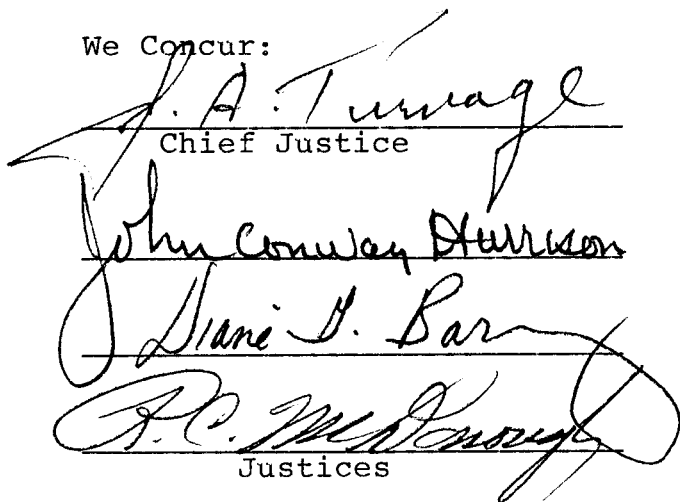 We Concur:
J. A. Turnage
Chief Justice
John Conway Harrison
Diane G. Bar
R. C. McDonough
Justices